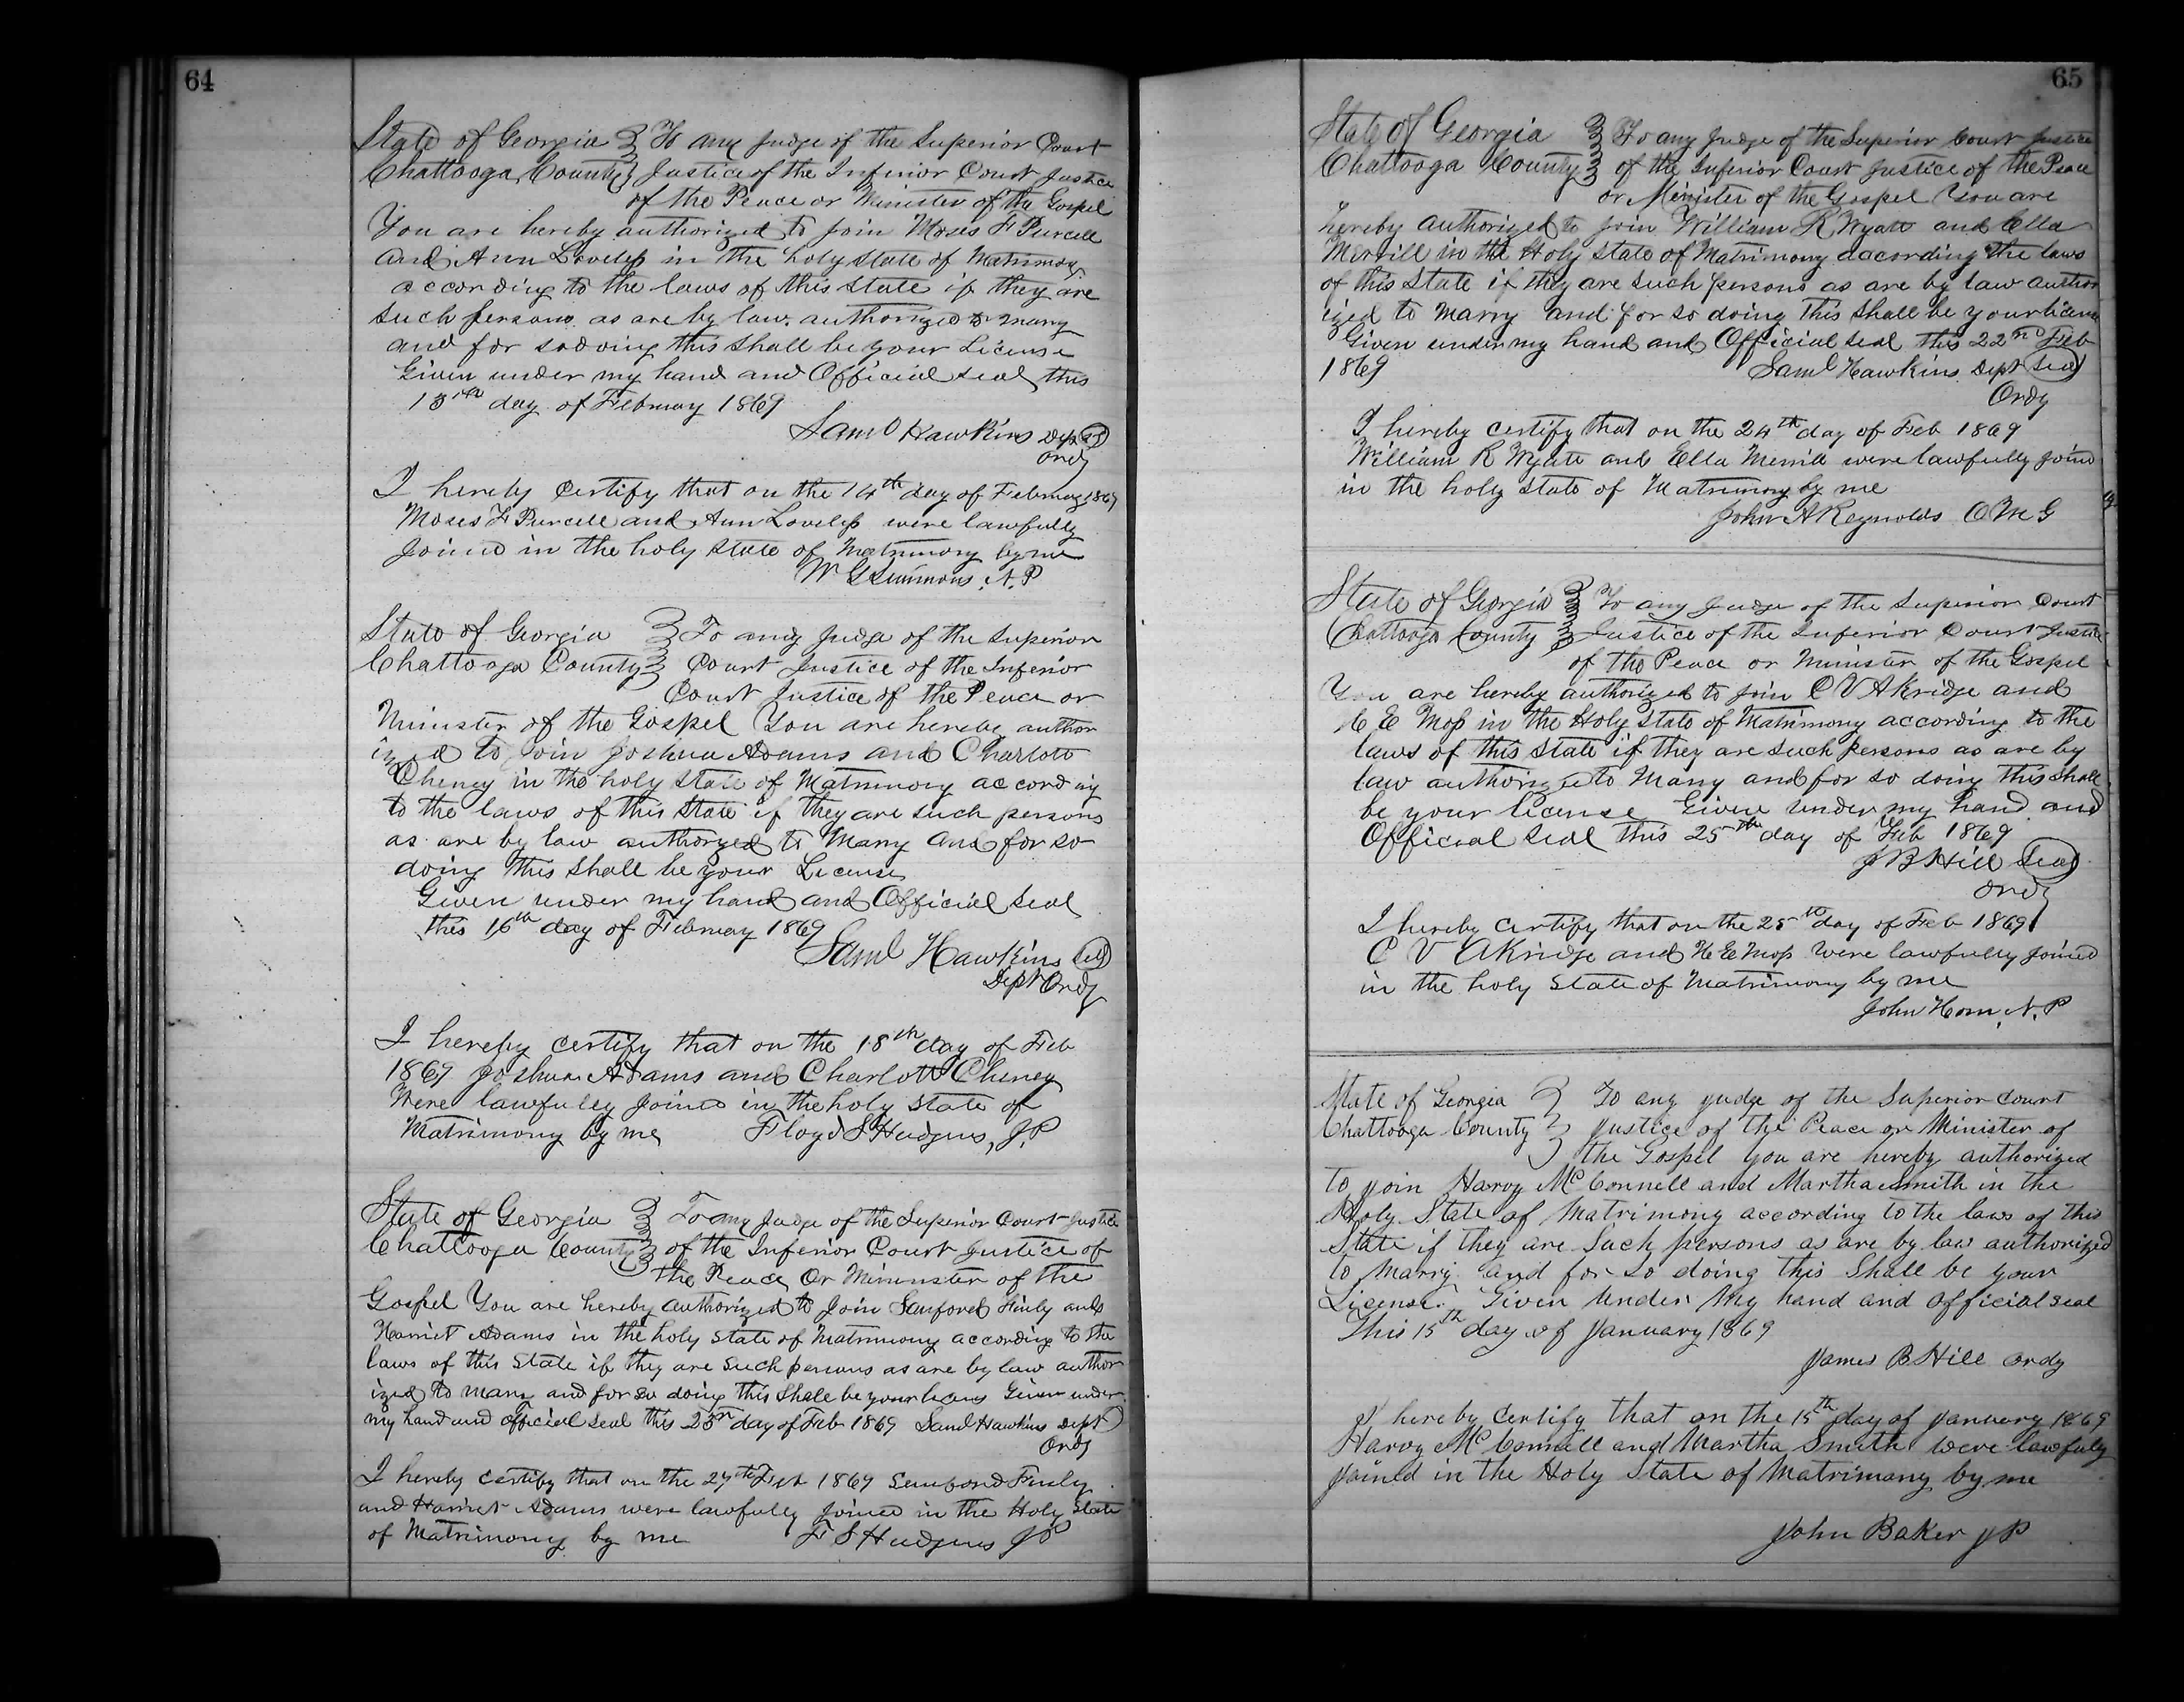 64
State of Georgia To any Judge of the Superior Court
Chattooga County Justice of the Inferior Court Justice
of the Peace or Minister of the Gospel
You are hereby authorized to join Moses F Purcell
and Ann Loveless in the holy state of Matrimony
according to the laws of this state if they are
such persons as are by law authorized to marry
and for so doing this shall be your License
Given under my hand and Official seal this
13th day of February 1869
Saml Hawkins Dept
Ordy
I hereby certify that on the 14th day of February 1869
Moses F Purcell and Ann Loveless were lawfully
joined in the holy state of Matrimony by me
W G Simmons N.P
State of Georgia To any Judge of the Superior
Chattooga County Court Justice of the Inferior
Court Justice of the Peace or
Minister of the Gospel You are hereby author
ized to join Joshua Adams and Charlott
Cheney in the holy state of Matrimony according
to the laws of this State if they are such persons
as are by law authorized to Marry and for so
doing this shall be your License
Given under my hand and Official seal
this 16th day of February 1869
Saml Hawkins
Dept Ordy
I hereby certify that on the 18th day of Feb
1869 Joshua Adams and Charlott Cheney
Were lawfully joined in the holy state of
Matrimony by me Floyd S Hudgins, JP
State of Georgia To any Judge of the Superior Court Justice
Chattooga County of the Inferior Court Justice of
the Peace Or Mininster of the
Gospel You are hereby authorized to join Sanford Finly and
Harriet Adams in the holy state of Matrimony according to the
laws of this state if they are such persons as are by law author
ized to marry and for so doing this shall be your license Given under
my hand and Official seal this 23rd day of Feb 1869 Saml Hawkins Dept
Ordy
I hereby certify that on the 27th Feb 1869 Sanford Finly
and Harriet Adams were lawfully joined in the Holy State
of Matrimony by me F S Hudgins JP
65
State of Georgia To any Judge of the Superior Court Justice
Chattooga County of the Inferior Court Justice of the Peace
or Minister of the Gospel You are
hereby authorized to join William R Wyatt and Ella
Merrill in the Holy state of Matrimony according the laws
of this State if they are such persons as are by law author
ized to Marry and for so doing this shall be your license
Given under my hand and Official seal this 22nd Feb
1869 Saml Hawkins Dept Seal
Ordy
I hereby certify that on the 24th day of Feb 1869
William R Wyatt and Ella Merrill were lawfully joined
in the holy state of Matrimony by me
John A Reynolds O M G
State of Georgia To any Judge of the Superior Court
Chattooga County Justice of the Inferior Court Justice
of the Peace or Minister of the Gospel
You are hereby authorized to join C V Akridge and
E Moss in the Holy state of Matrimony according to the
laws of this state if they are such persons as are by
law authorized to Marry and for so doing this shall
be your license Given under my hand and
Official seal this 25th day of Feb 1869
J B Hill Seal
Ordy
I hereby certify that on the 25th day of Feb 1869
C V Akridge and E Moss were lawfully joined
in the holy state of Matrimony by me
John Horn, N.P
State of Georgia To any Judge of the Superior Court
Chattooga County Justice of the Peace or Minister of
the Gospel You are hereby authorized
to join Harvy McConnell and Martha Smith in the
Holy State of Matrimony according to the laws of this
State if they are Such persons as are by law authorized
to Marry and for so doing this Shall be your
License. Given Under My hand and official seal
This 15th day of January 1869
James B Hill Ordy
I hereby Certify that on the 15th day of January 1869
Harvy McConnell and Martha Smith were lawfuly
joined in the Holy State of Matrimony by me
John Baker JP